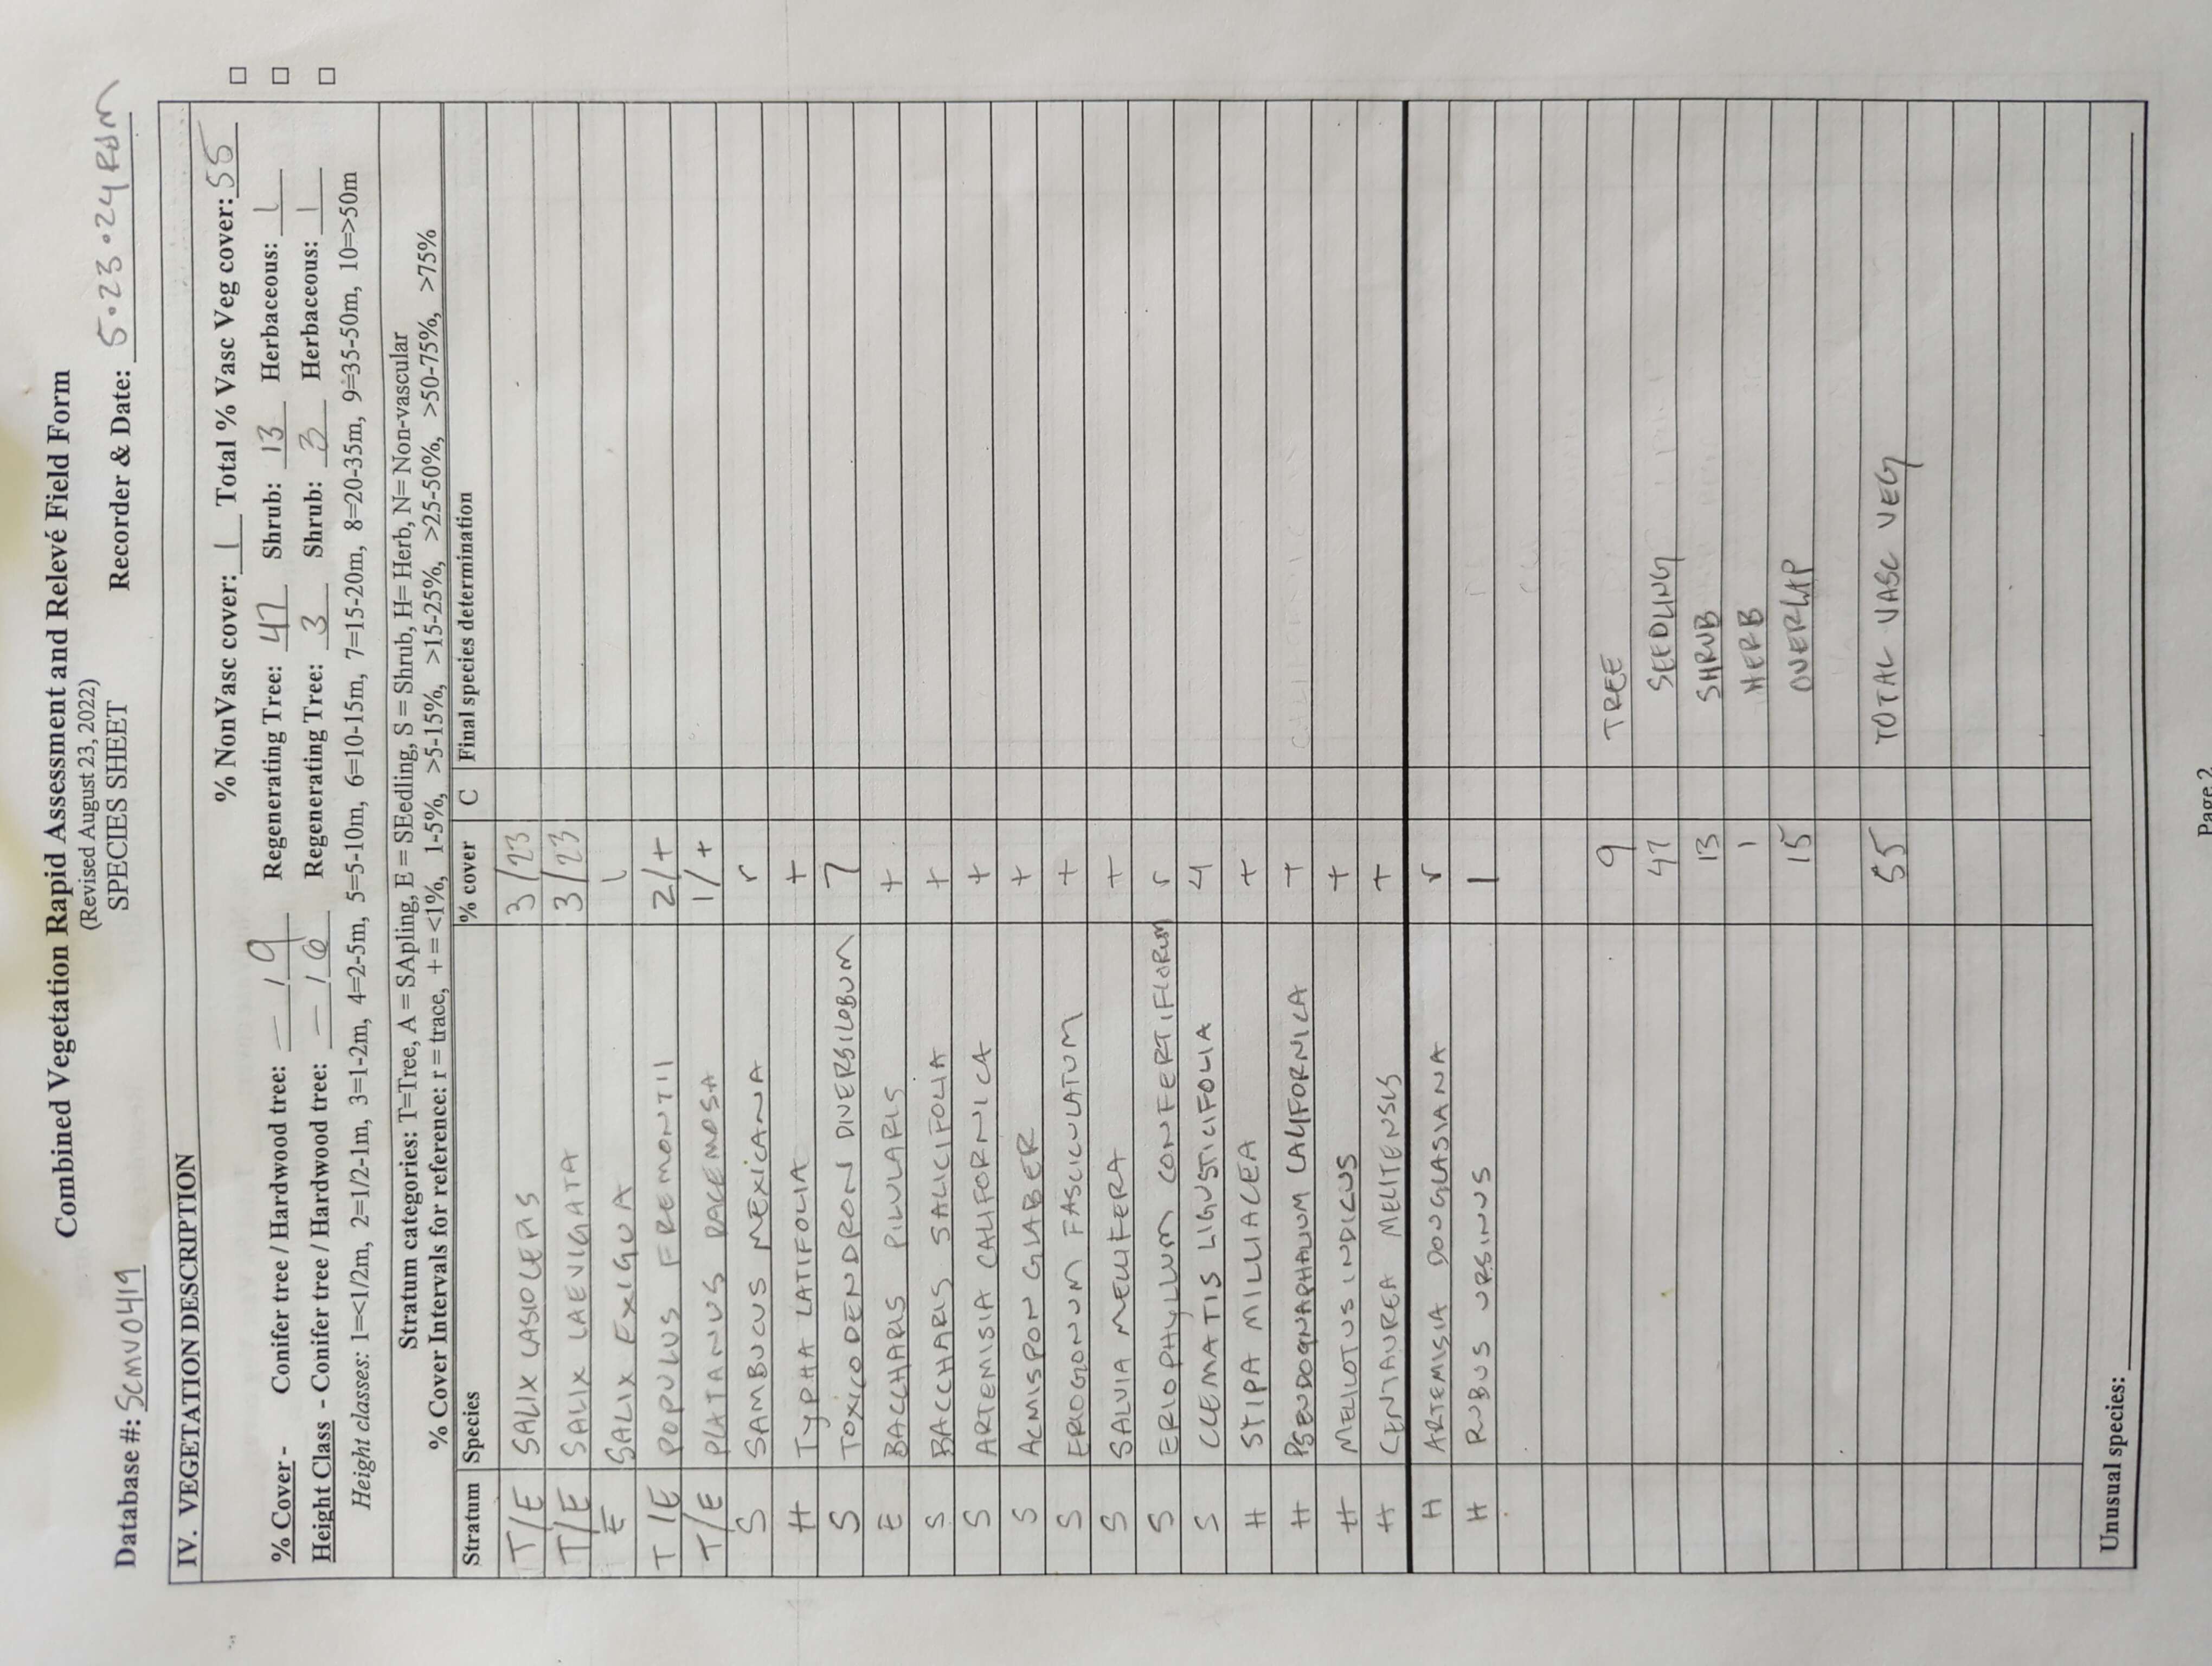 Combined Vegetation Rapid Assessment and Relevé Field Form
(Revised August 23, 2022)
SPECIES SHEET
Database #: SCMV0419 Recorder & Date: 5.23.24 RDM
IV. VEGETATION DESCRIPTION
% NonVasc cover: 1 Total % Vasc Veg cover: 55 □
% Cover - Conifer tree / Hardwood tree: — / 9 Regenerating Tree: 47 Shrub: 13 Herbaceous: 1 □
Height Class - Conifer tree / Hardwood tree: — / 6 Regenerating Tree: 3 Shrub: 3 Herbaceous: 1 □
Height classes: 1=<1/2m, 2=1/2-1m, 3=1-2m, 4=2-5m, 5=5-10m, 6=10-15m, 7=15-20m, 8=20-35m, 9=35-50m, 10=>50m
Stratum categories: T=Tree, A = SApling, E = SEedling, S = Shrub, H= Herb, N= Non-vascular
% Cover Intervals for reference: r = trace, + = <1%, 1-5%, >5-15%, >15-25%, >25-50%, >50-75%, >75%
Stratum Species % cover C Final species determination
T/E SALIX LASIOLEPIS 3/23
T/E SALIX LAEVIGATA 3/23
E SALIX EXIGUA 1
T/E POPULUS FREMONTII 2/+
T/E PLATANUS RACEMOSA 1/+
S SAMBUCUS MEXICANA r
H TYPHA LATIFOLIA +
S TOXICODENDRON DIVERSILOBUM 7
E BACCHARIS PILULARIS +
S BACCHARIS SALICIFOLIA +
S ARTEMISIA CALIFORNICA +
S ACMISPON GLABER +
S ERIOGONUM FASCICULATUM +
S SALVIA MELLIFERA +
S ERIOPHYLLUM CONFERTIFLORUM r
S CLEMATIS LIGUSTICIFOLIA 4
H STIPA MILLIACEA +
H PSEUDOGNAPHALIUM CALIFORNICA +
H MELILOTUS INDICUS +
H CENTAUREA MELITENSIS +
H ARTEMISIA DOUGLASIANA r
H RUBUS URSINUS 1
9 TREE
47 SEEDLING
13 SHRUB
1 HERB
15 OVERLAP
55 TOTAL VASC VEG
Unusual species:
Page 2